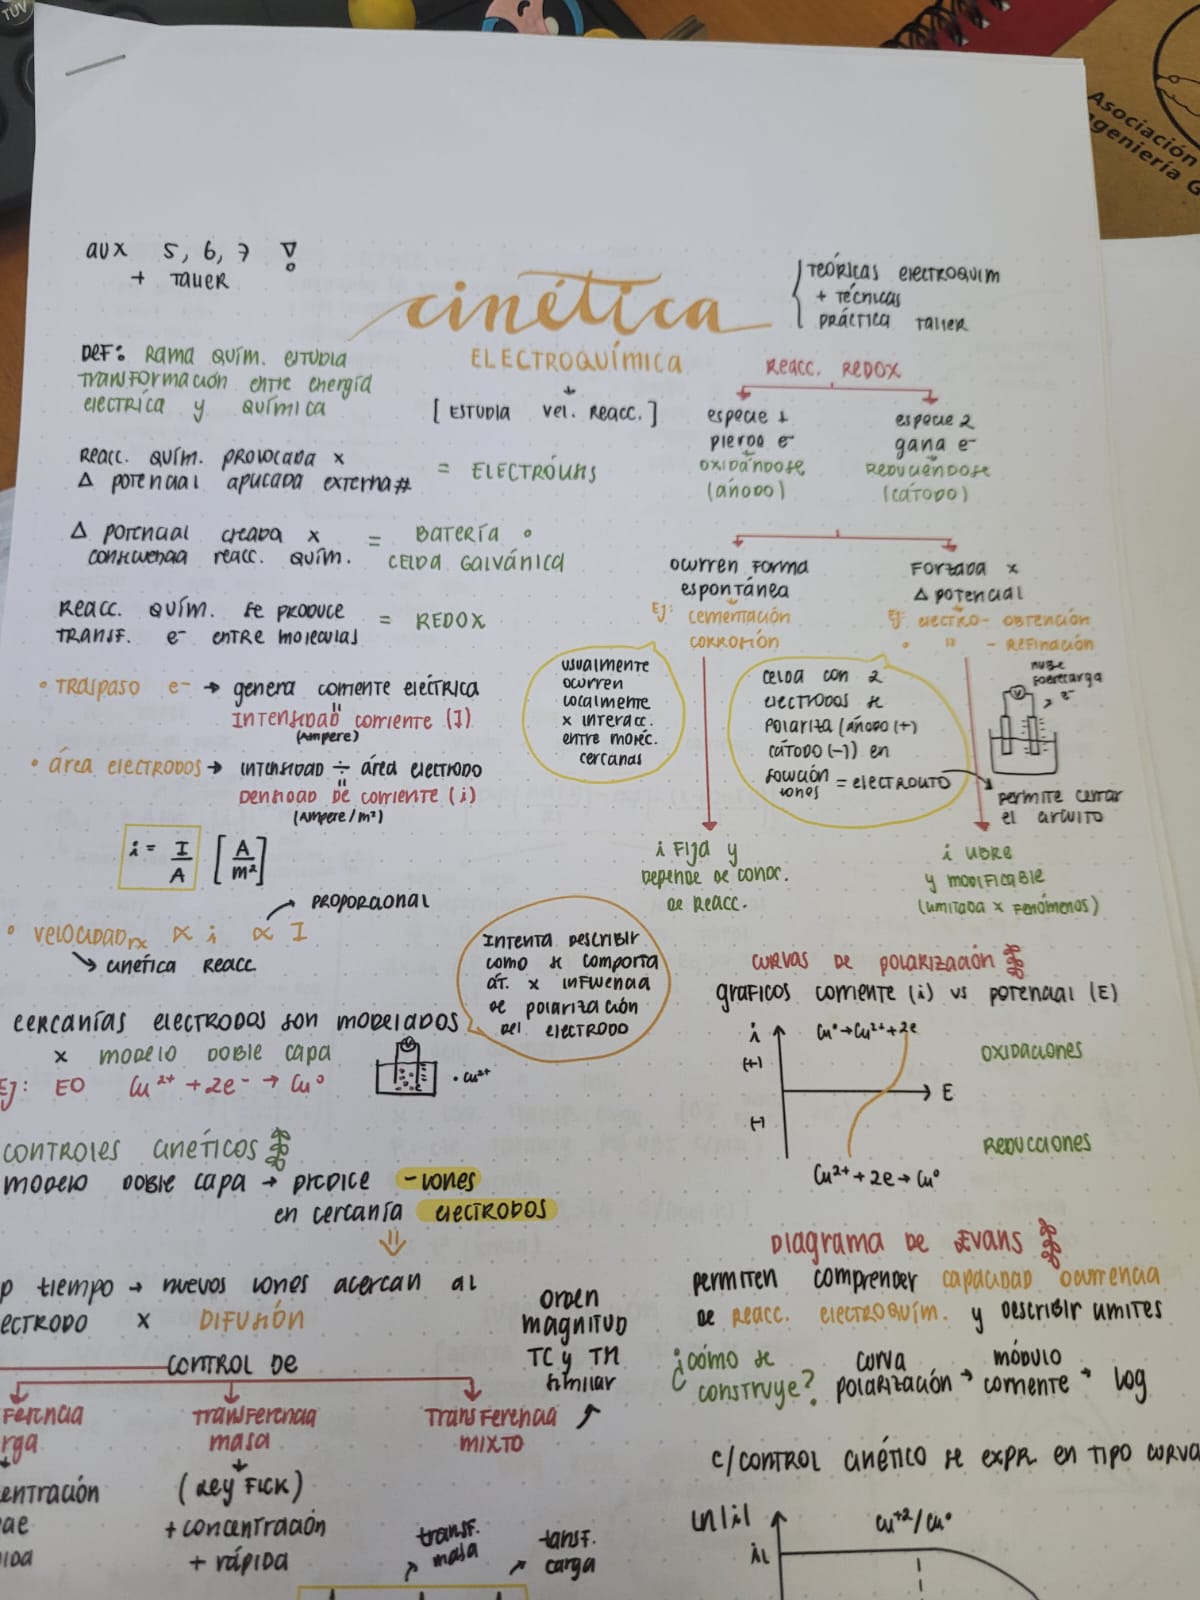 TUV
Asociación
ngeniería G
aux 5, 6, 7
+ Taller
cinética
ELECTROQUÍMICA
[ESTUDIA Vel. Reacc.]
Teóricas electroquim
+ Técnicas
Práctica Taller
Def: Rama quím. estudia
transformación entre energía
eléctrica y química
Reacc. quím. provocada x
Δ potencial aplicada externa#
= Electrólisis
Δ potencial creada x
consecuencia reacc. quím.
= Batería o
celda galvánica
Reacc. quím. se produce
transf. e- entre moléculas
= REDOX
Reacc. REDOX
especie 1
pierde e-
oxidándose
(ánodo)
especie 2
gana e-
reduciéndose
(cátodo)
ocurren forma
espontánea
Ej: cementación
corrosión
Forzada x
Δ potencial
Ej: electro-obtención
" -Refinación
usualmente
ocurren
localmente
x interacc.
entre moléc.
cercanas
celda con 2
electrodos se
polariza (ánodo (+)
cátodo (-)) en
solución = electrolito
iones
e-
V
permite cerrar
el circuito
i Fija y
Depende de conc.
de Reacc.
i libre
y modificable
(limitada x fenómenos)
• Traspaso e- → genera corriente eléctrica
"
Intensidad corriente (I)
(Ampere)
• área electrodos → intensidad ÷ área electrodo
"
Densidad de corriente (i)
(Ampere/m²)
i = I/A [A/m²]
→ proporcional
• velocidad rx ∝ i ∝ I
↘ cinética Reacc.
Intenta describir
como se comporta
at. x influencia
de polarización
del electrodo
cercanías electrodos son modelados
x modelo doble capa
Ej: EO Cu²⁺ + 2e⁻ → Cu⁰
V
• Cu²⁺
curvas de polarización
gráficos corriente (i) vs potencial (E)
i
(+)
(-)
Cu⁰→Cu²⁺+2e
E
oxidaciones
Reducciones
Cu²⁺+2e→Cu⁰
controles cinéticos
modelo doble capa → predice -iones
en cercanía electrodos
⇓
p tiempo → nuevos iones acercan al
ectrodo x DIFUSIÓN
CONTROL DE
ferencia
rga
Transferencia
masa
Transferencia
mixto
orden
magnitud
TC y TM
similar
entración
(Ley Fick)
+ concentración
+ rápida
transf.
masa
transf.
carga
Diagrama de Evans
permiten comprender capacidad ocurrencia
de reacc. electroquím. y describir limites
¿cómo se
construye?
curva
polarización → módulo
corriente → log
c/control cinético se expr. en tipo curva
ln|i|
iL
Cu⁺²/Cu⁰